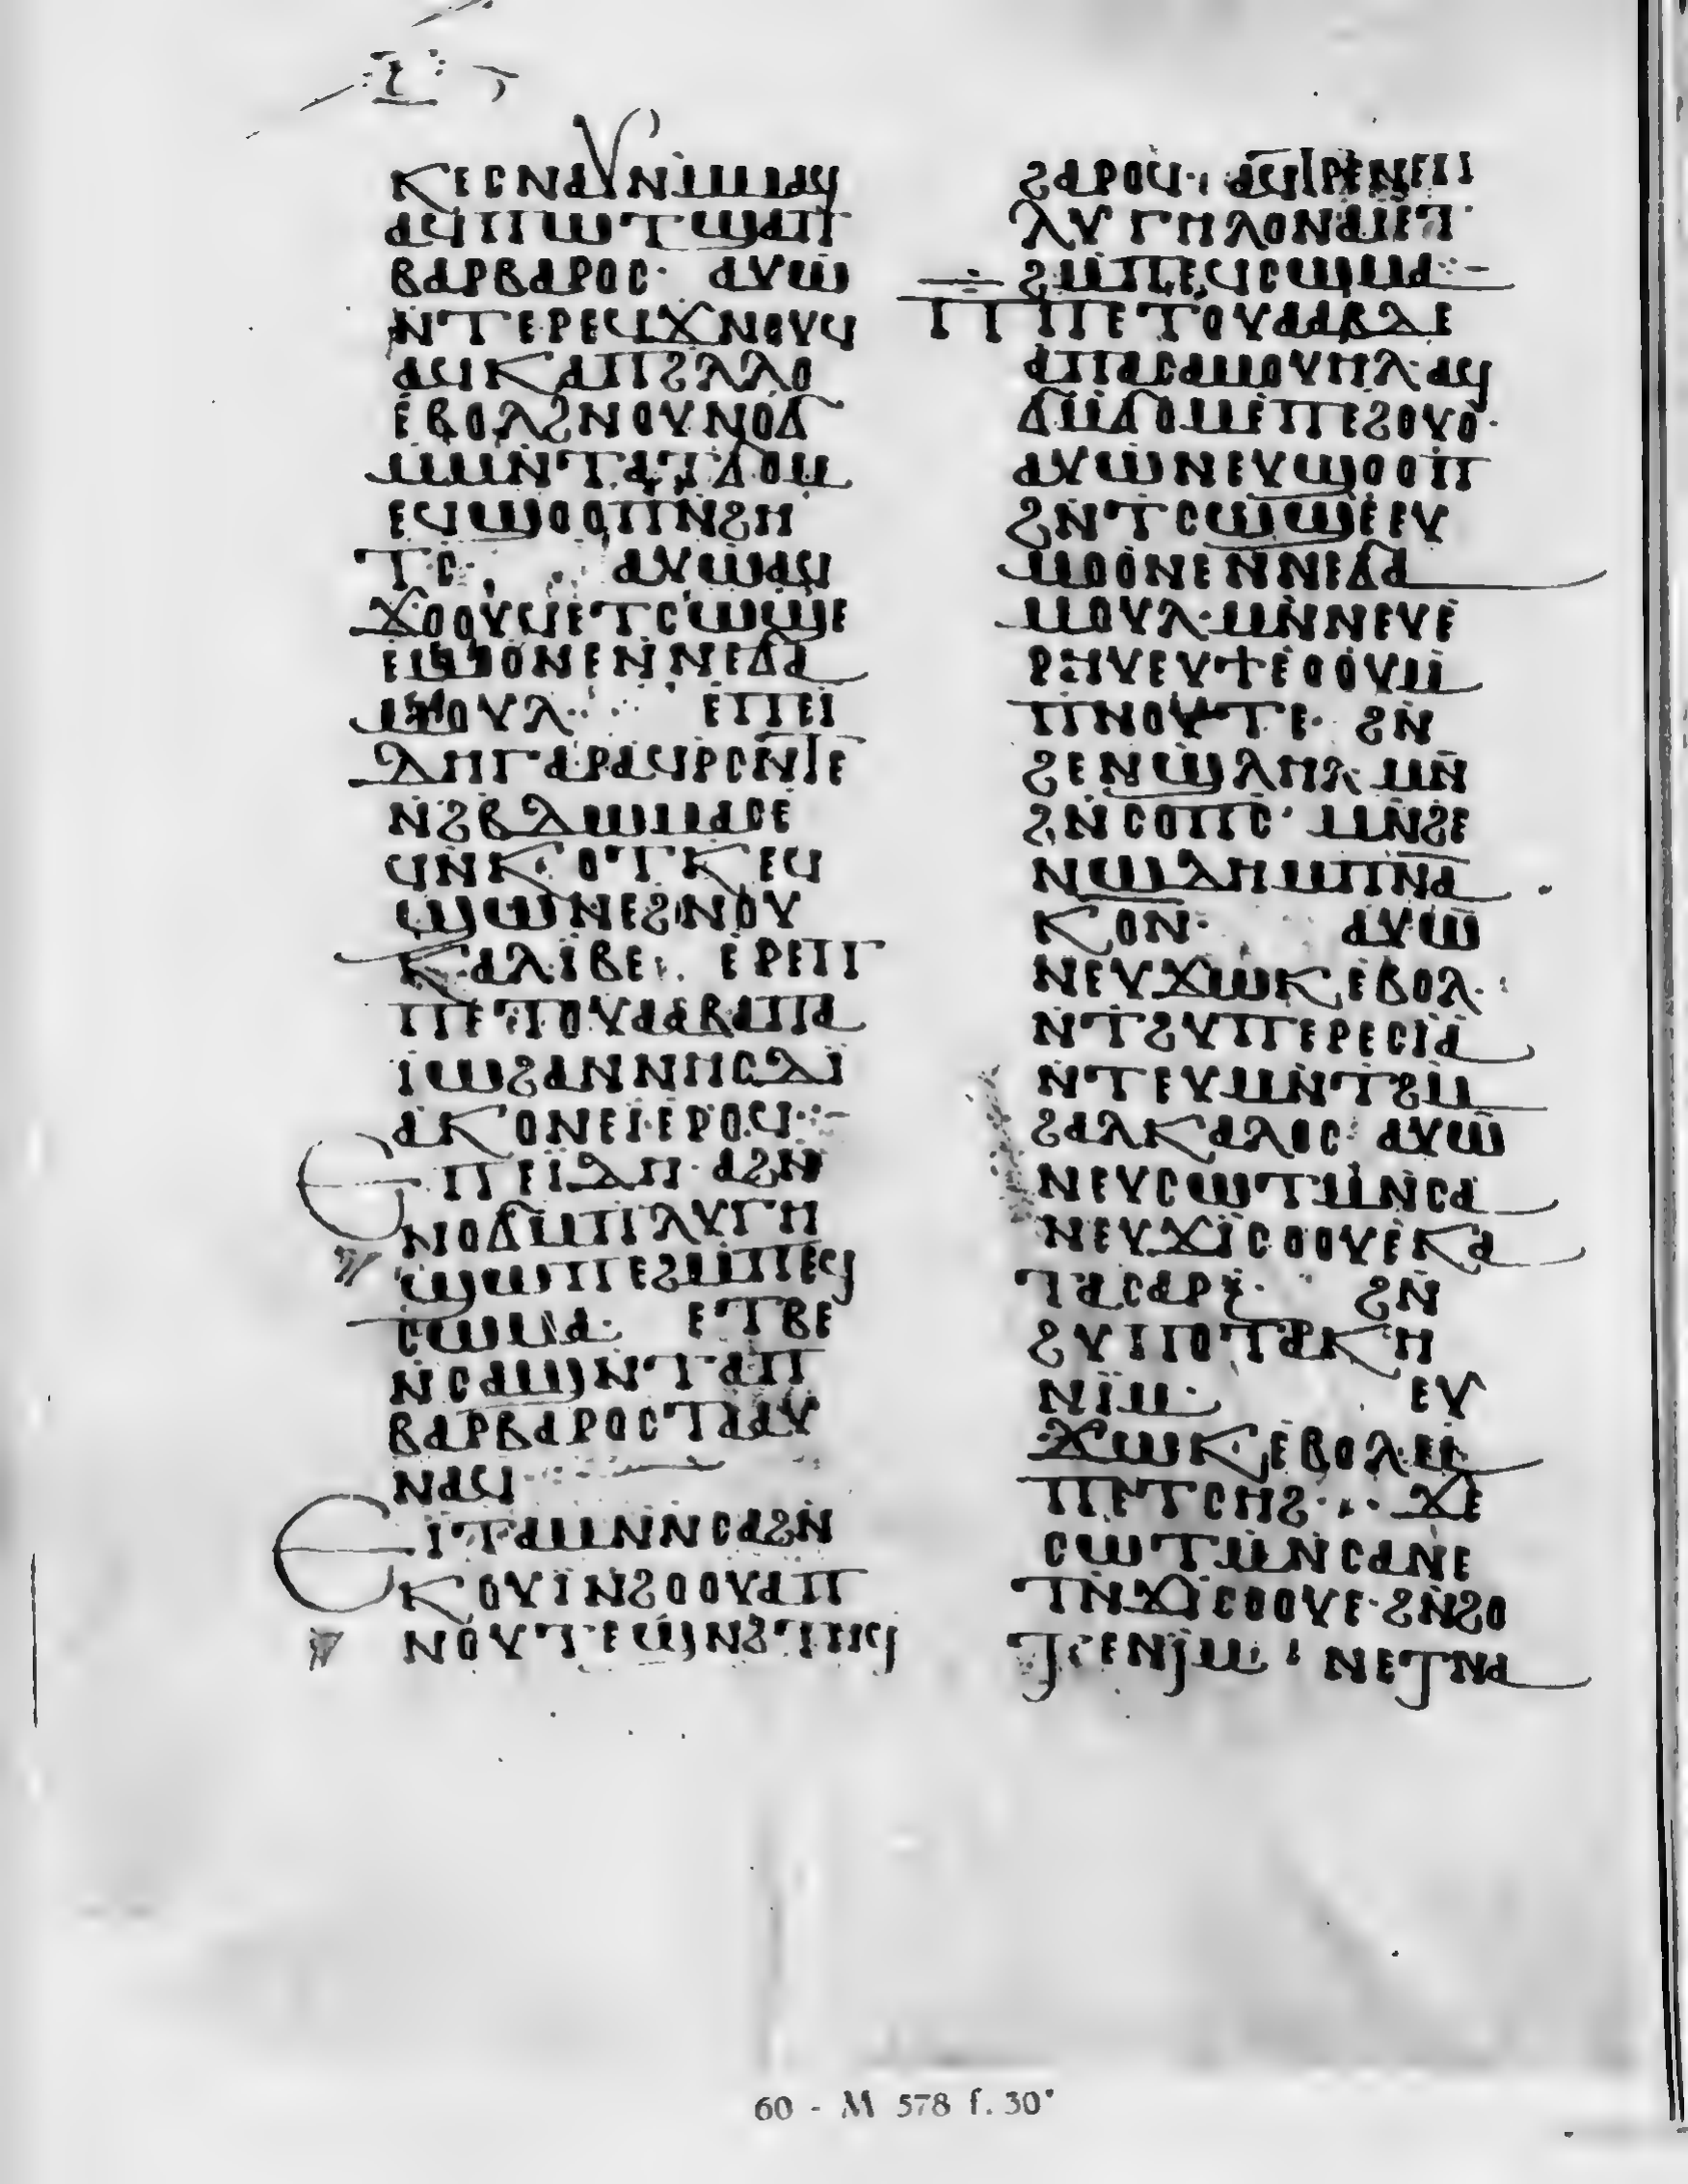 ⲝ
ⲕⲉⲥⲛⲁⲩⲛⲙⲙⲁϥ
ⲁϥⲡⲱⲧϣⲁⲡ
ⲃⲁⲣⲃⲁⲣⲟⲥ· ⲁⲩⲱ
ⲛⲧⲉⲣⲉϥϫⲛⲟⲩϥ
ⲁϥⲕⲁⲡϩⲗⲗⲟ
ⲉⲃⲟⲗϩⲛⲟⲩⲛⲟϭ
ⲙⲙⲛⲧⲁⲧϭⲟⲙ
ⲉϥϣⲟⲟⲡⲛϩⲏ
ⲧⲥ· ⲁⲩⲱⲁϥ
ϫⲟⲟⲩϥⲉⲧⲥⲱϣⲉ
ⲉⲙⲟⲟⲛⲉⲛⲛⲉϭⲁ
ⲙⲟⲩⲗ· ⲉⲡⲉⲓ
ⲇⲏⲅⲁⲣⲁϥⲣⲥⲛⲧⲉ
ⲛϩⲃⲇⲱⲙⲁⲥⲉ
ϥⲛⲕⲟⲧⲕⲉϥ
ϣⲱⲛⲉϩⲛⲟⲩ
ⲕⲁⲗⲓⲃⲉ· ⲉⲣⲉⲡ
ⲡⲉⲧⲟⲩⲁⲁⲃⲁⲡⲁ
ⲓⲱϩⲁⲛⲛⲏⲥⲇⲓ
ⲁⲕⲟⲛⲉⲓⲉⲣⲟϥ·
ⲉⲡⲉⲓⲇⲏ·ⲁϩⲛ
ⲛⲟϭⲙⲡⲗⲩⲅⲏ
ϣⲱⲡⲉϩⲙⲡⲉϥ
ⲥⲱⲙⲁ· ⲉⲧⲃⲉ
ⲛⲥⲁϣⲛⲧⲁⲡ
ⲃⲁⲣⲃⲁⲣⲟⲥⲧⲁⲁⲩ
ⲛⲁϥ
ⲉⲓⲧⲁⲙⲛⲛⲥⲁϩⲛ
ⲕⲟⲩⲓⲛϩⲟⲟⲩⲁⲡ
ⲛⲟⲩⲧⲉϣⲛϩⲧⲏϥ
ϩⲁⲣⲟϥ· ⲁϥⲧⲣⲉⲛⲉⲡ
ⲗⲩⲅⲏⲗⲟⲛⲁⲓⲉⲧ
ϩⲙⲡⲉϥⲥⲱⲙⲁ
ⲡⲡⲉⲧⲟⲩⲁⲁⲃⲇⲉ
ⲁⲡⲁⲥⲁⲙⲟⲩⲏⲗ·ⲁϥ
ϭⲙϭⲟⲙⲉⲡⲉϩⲟⲩⲟ·
ⲁⲩⲱⲛⲉⲩϣⲟⲟⲡ
ϩⲛⲧⲥⲱϣⲉⲉⲩ
ⲙⲟⲟⲛⲉⲛⲛⲉϭⲁ
ⲙⲟⲩⲗ·ⲙⲛⲛⲉⲩⲉ
ⲣⲏⲩⲉⲩϯⲉⲟⲟⲩⲙ
ⲡⲛⲟⲩⲧⲉ· ϩⲛ
ϩⲉⲛϣⲗⲏⲗ·ⲙⲛ
ϩⲛⲥⲟⲡⲥ· ⲙⲛϩⲉ
ⲛⲱⲇⲏⲙⲡⲛⲁ
ⲕⲟⲛ· ⲁⲩⲱ
ⲛⲉⲩϫⲱⲕⲉⲃⲟⲗ·
ⲛⲧϩⲩⲡⲉⲣⲉⲥⲓⲁ
ⲛⲧⲉⲩⲙⲛⲧϩⲙ
ϩⲁⲗⲕⲁⲗⲟⲥ· ⲁⲩⲱ
ⲛⲉⲩⲥⲱⲧⲙⲛⲥⲁ
ⲛⲉⲩϫⲓⲥⲟⲟⲩⲉⲕⲁ
ⲧⲁⲥⲁⲣⲝ· ϩⲛ
ϩⲩⲡⲟⲧⲁⲕⲏ
ⲛⲓⲙ· ⲉⲩ
ϫⲱⲕⲉⲃⲟⲗⲙ
ⲡⲉⲧⲥⲏϩ· ϫⲉ
ⲥⲱⲧⲙⲛⲥⲁⲛⲉ
ⲧⲛϫⲓⲥⲟⲟⲩⲉ·ϩⲛϩⲟ
ⲧⲉⲛⲓⲙ· ⲛⲉⲧⲛⲁ
60 - M 578 f. 30ᵛ